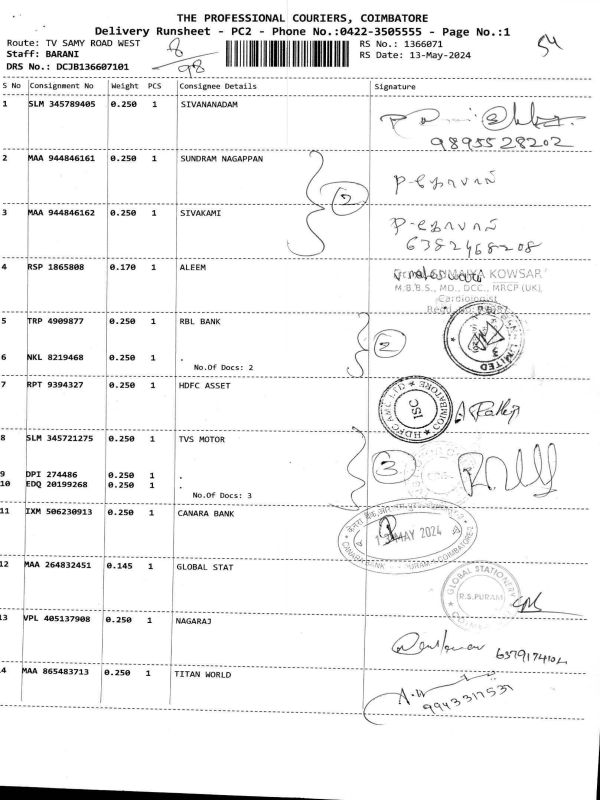 THE PROFESSIONAL COURIERS, COIMBATORE
Delivery Runsheet - PC2 - Phone No.:0422-3505555 - Page No.:1
Route: TV SAMY ROAD WEST 8 RS No.: 1366071 54
Staff: BARANI RS Date: 13-May-2024
DRS No.: DCJB136607101 98
S No Consignment No Weight PCS Consignee Details Signature
1 SLM 345789405 0.250 1 SIVANANADAM
9895528202
2 MAA 944846161 0.250 1 SUNDRAM NAGAPPAN
2
3 MAA 944846162 0.250 1 SIVAKAMI
6382468208
4 RSP 1865808 0.170 1 ALEEM KOWSAR
M.B.B.S., MD., DCC., MRCP (UK),
Cardiologist
5 TRP 4909877 0.250 1 RBL BANK
2 LIMITED
6 NKL 8219468 0.250 1 .
No.Of Docs: 2
7 RPT 9394327 0.250 1 HDFC ASSET
HDFC AMC LTD COIMBATORE CSC
8 SLM 345721275 0.250 1 TVS MOTOR
3
9 DPI 274486 0.250 1 .
10 EDQ 20199268 0.250 1 .
No.Of Docs: 3
11 IXM 506230913 0.250 1 CANARA BANK
MAY 2024
CANARA BANK PURAM COIMBATORE
12 MAA 264832451 0.145 1 GLOBAL STAT
GLOBAL STATIONERY
R.S.PURAM
13 VPL 405137908 0.250 1 NAGARAJ
14 MAA 865483713 0.250 1 TITAN WORLD
9943317531